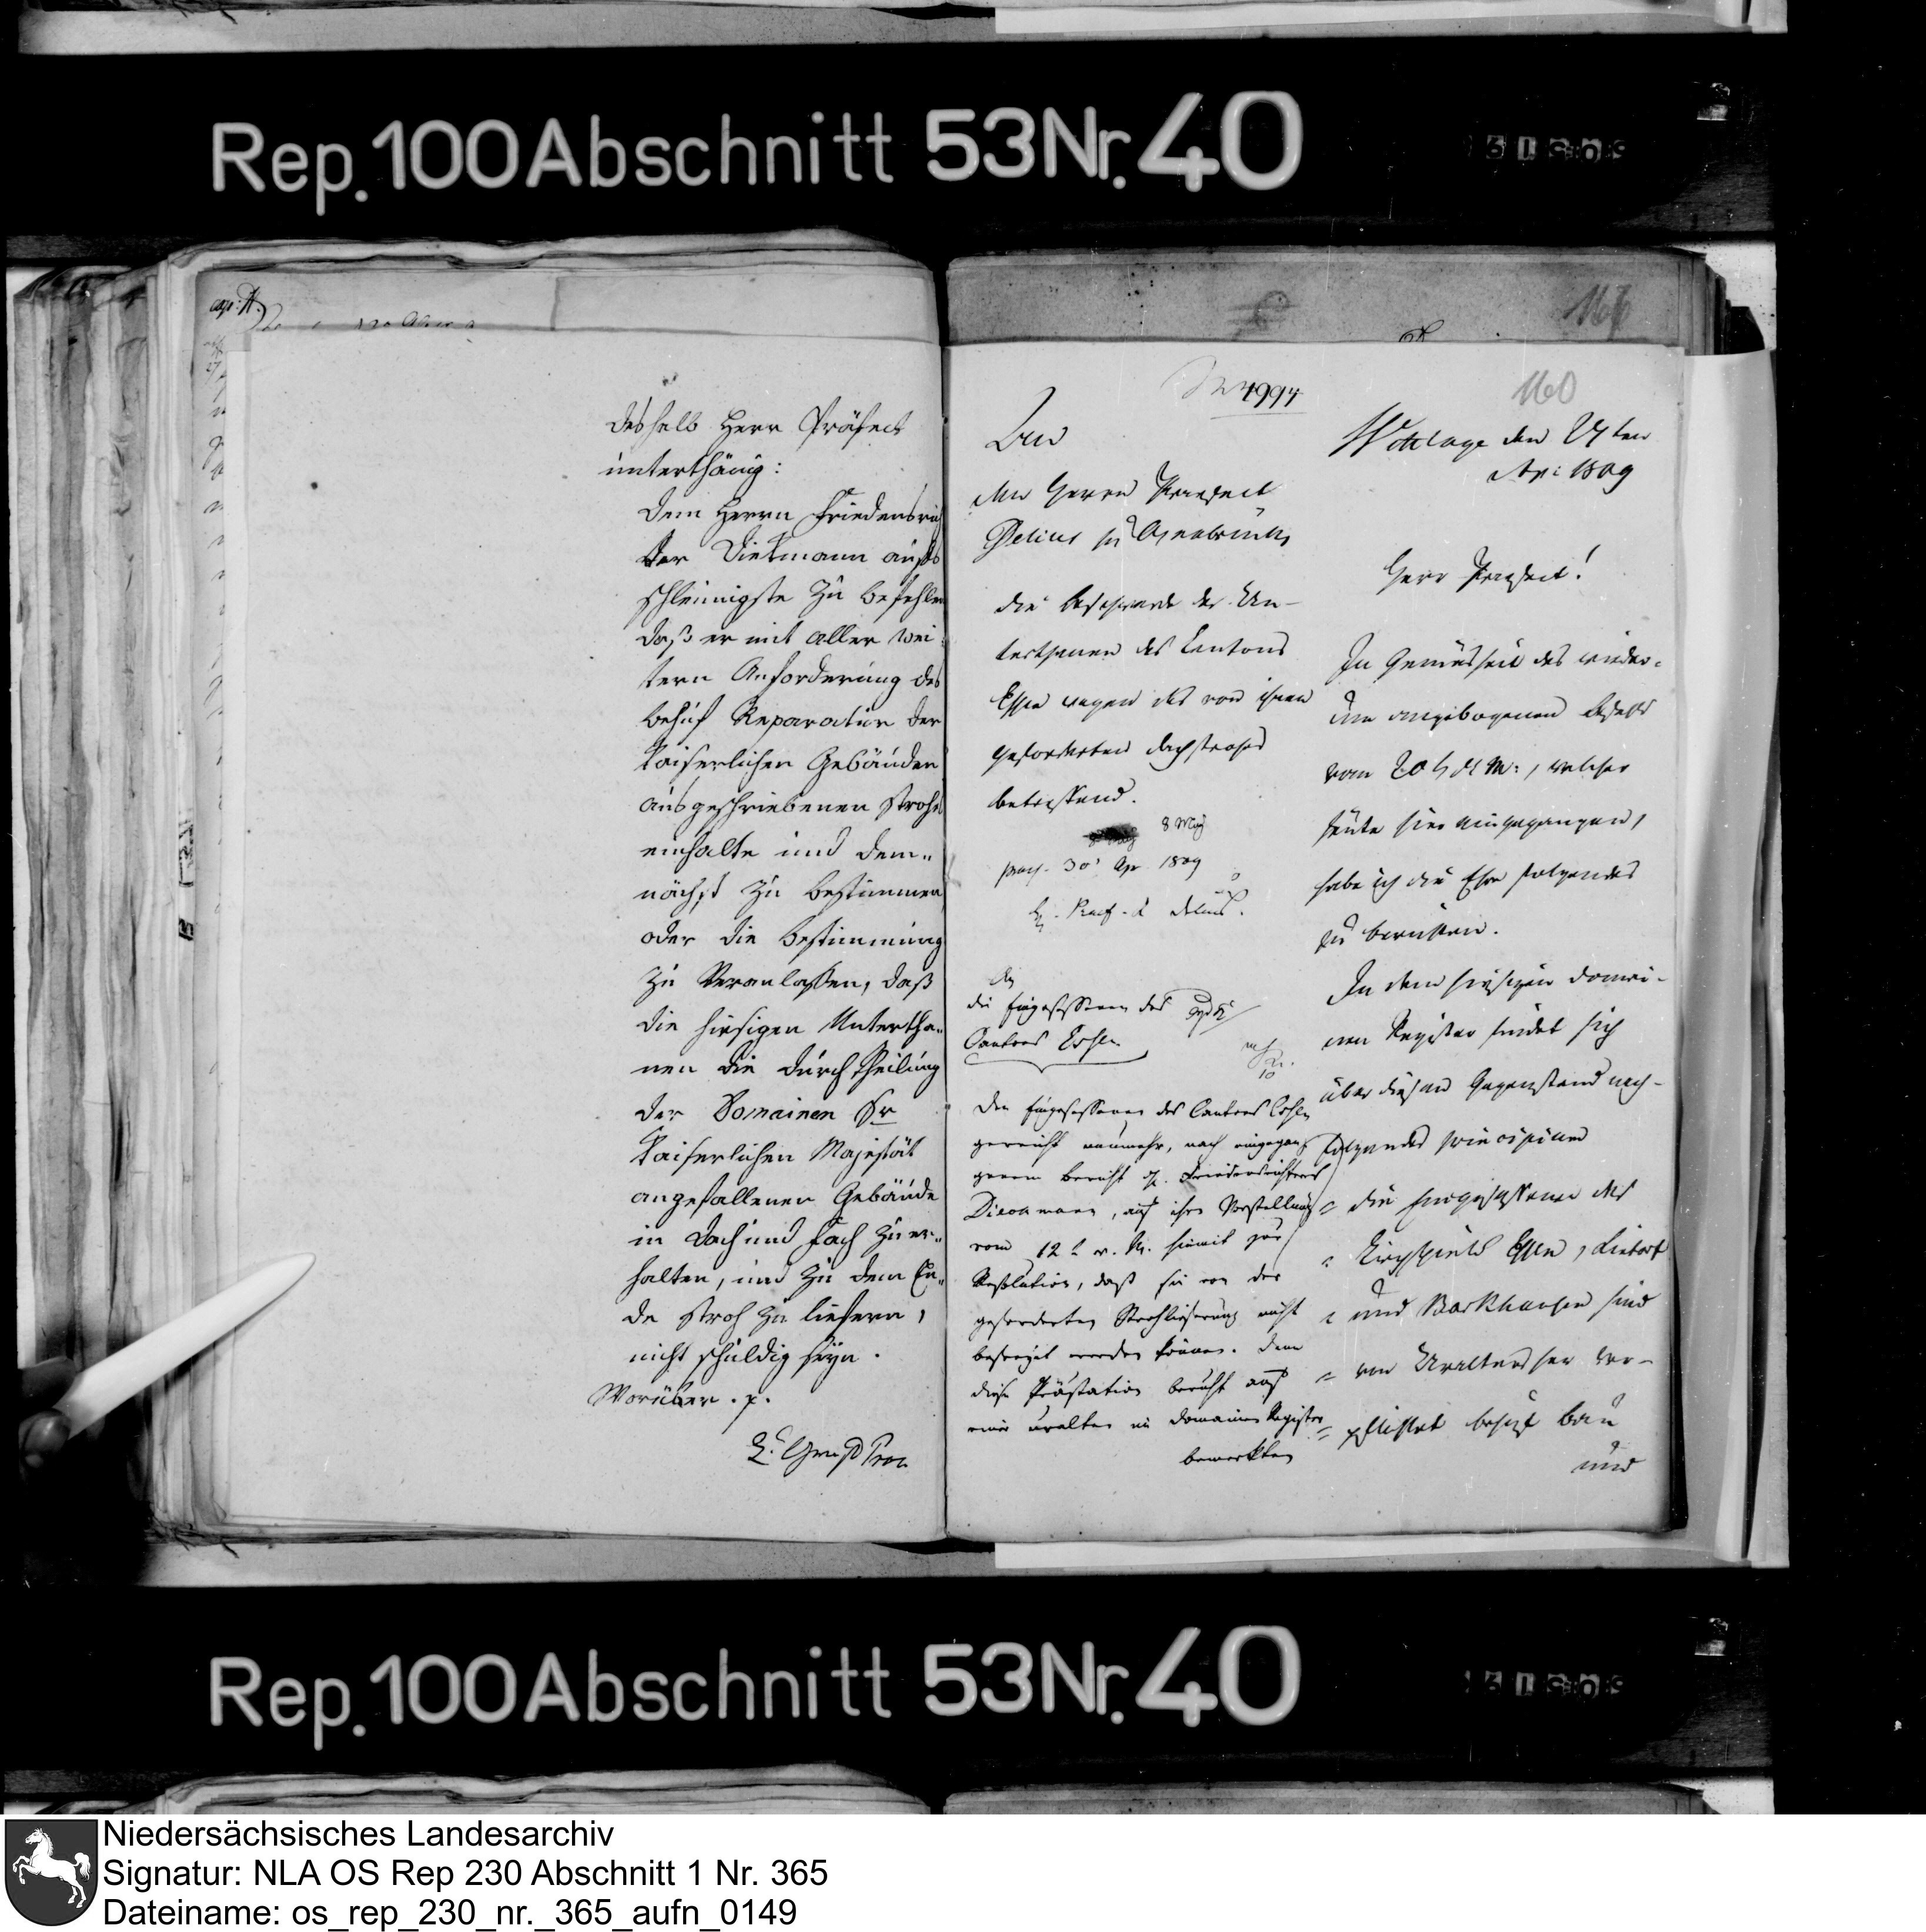 Rep. 100 Abschnitt 53 Nr. 40
deshalb Herr Präfect
unterthänig:
dem Herrn Friedensrich
ter Diekmann aufs
schleunigste zu befehlen
daß er mit aller wei
tern Anforderung des
behuf Reparatur der
Kaiserlichen Gebäuden
ausgeschriebenen Strohs
einhalte und dem„
nächst zu bestimmen
oder die Bestimmung
zu Veranlassen, daß
die hiesigen Untertha„
nen die durch Theilung
der Domainen Sr
Kaiserlichen Majestät
angefallenen Gebäude
in Dach und Fach zu er„
halten, und zu dem En„
de Stroh zu liefern,
nicht schuldig seyn.
Worüber. p.
160
4994
An
den Herrn Praefect
Delius zu Osnabrück
die Beschwerde der Un-
terthanen des Cantons
Essen wegen des von ihnen
geforderten Dachstrohes
betreffend.
8 May
praes. 30' Apr 1809
die Eingesessenen des
Cantons Essen
Den Eingesessenen des Cantons Essen
gereicht nunmehr, nach eingegan
genem Bericht Friedensrichters
Dieckmann, auf ihre Vorstellung
vom 12 v. M. hiemit zur
Resolution, daß sie von der
geforderten Strohlieferung nicht
befreyet werden können. Denn
diese Prästation beruht auf
einer uralten im Domainen Register
bemerkten
Wittlage den 24ten
Apr: 1809
Herr Praefect!
In Gemäsheit des wieder-
um angebogenen Befehls
vom 20t d. M:, welcher
heute hier eingegangen,
habe ich die Ehre folgendes
zu berichten.
In dem hiesigen Domai-
nen Register findet sich
über diesen Gegenstand nach-
folgendes
= die Eingesessenen des
= Kirchspiels Essen, Lintorf
= und Barkhausen sind
= von Uralters her ver-
= pflichtet behuf Bau
und
Rep. 100 Abschnitt 53 Nr. 40
Niedersächsisches Landesarchiv
Signatur: NLA OS Rep 230 Abschnitt 1 Nr. 365
Dateiname: os_rep_230_nr._365_aufn_0149